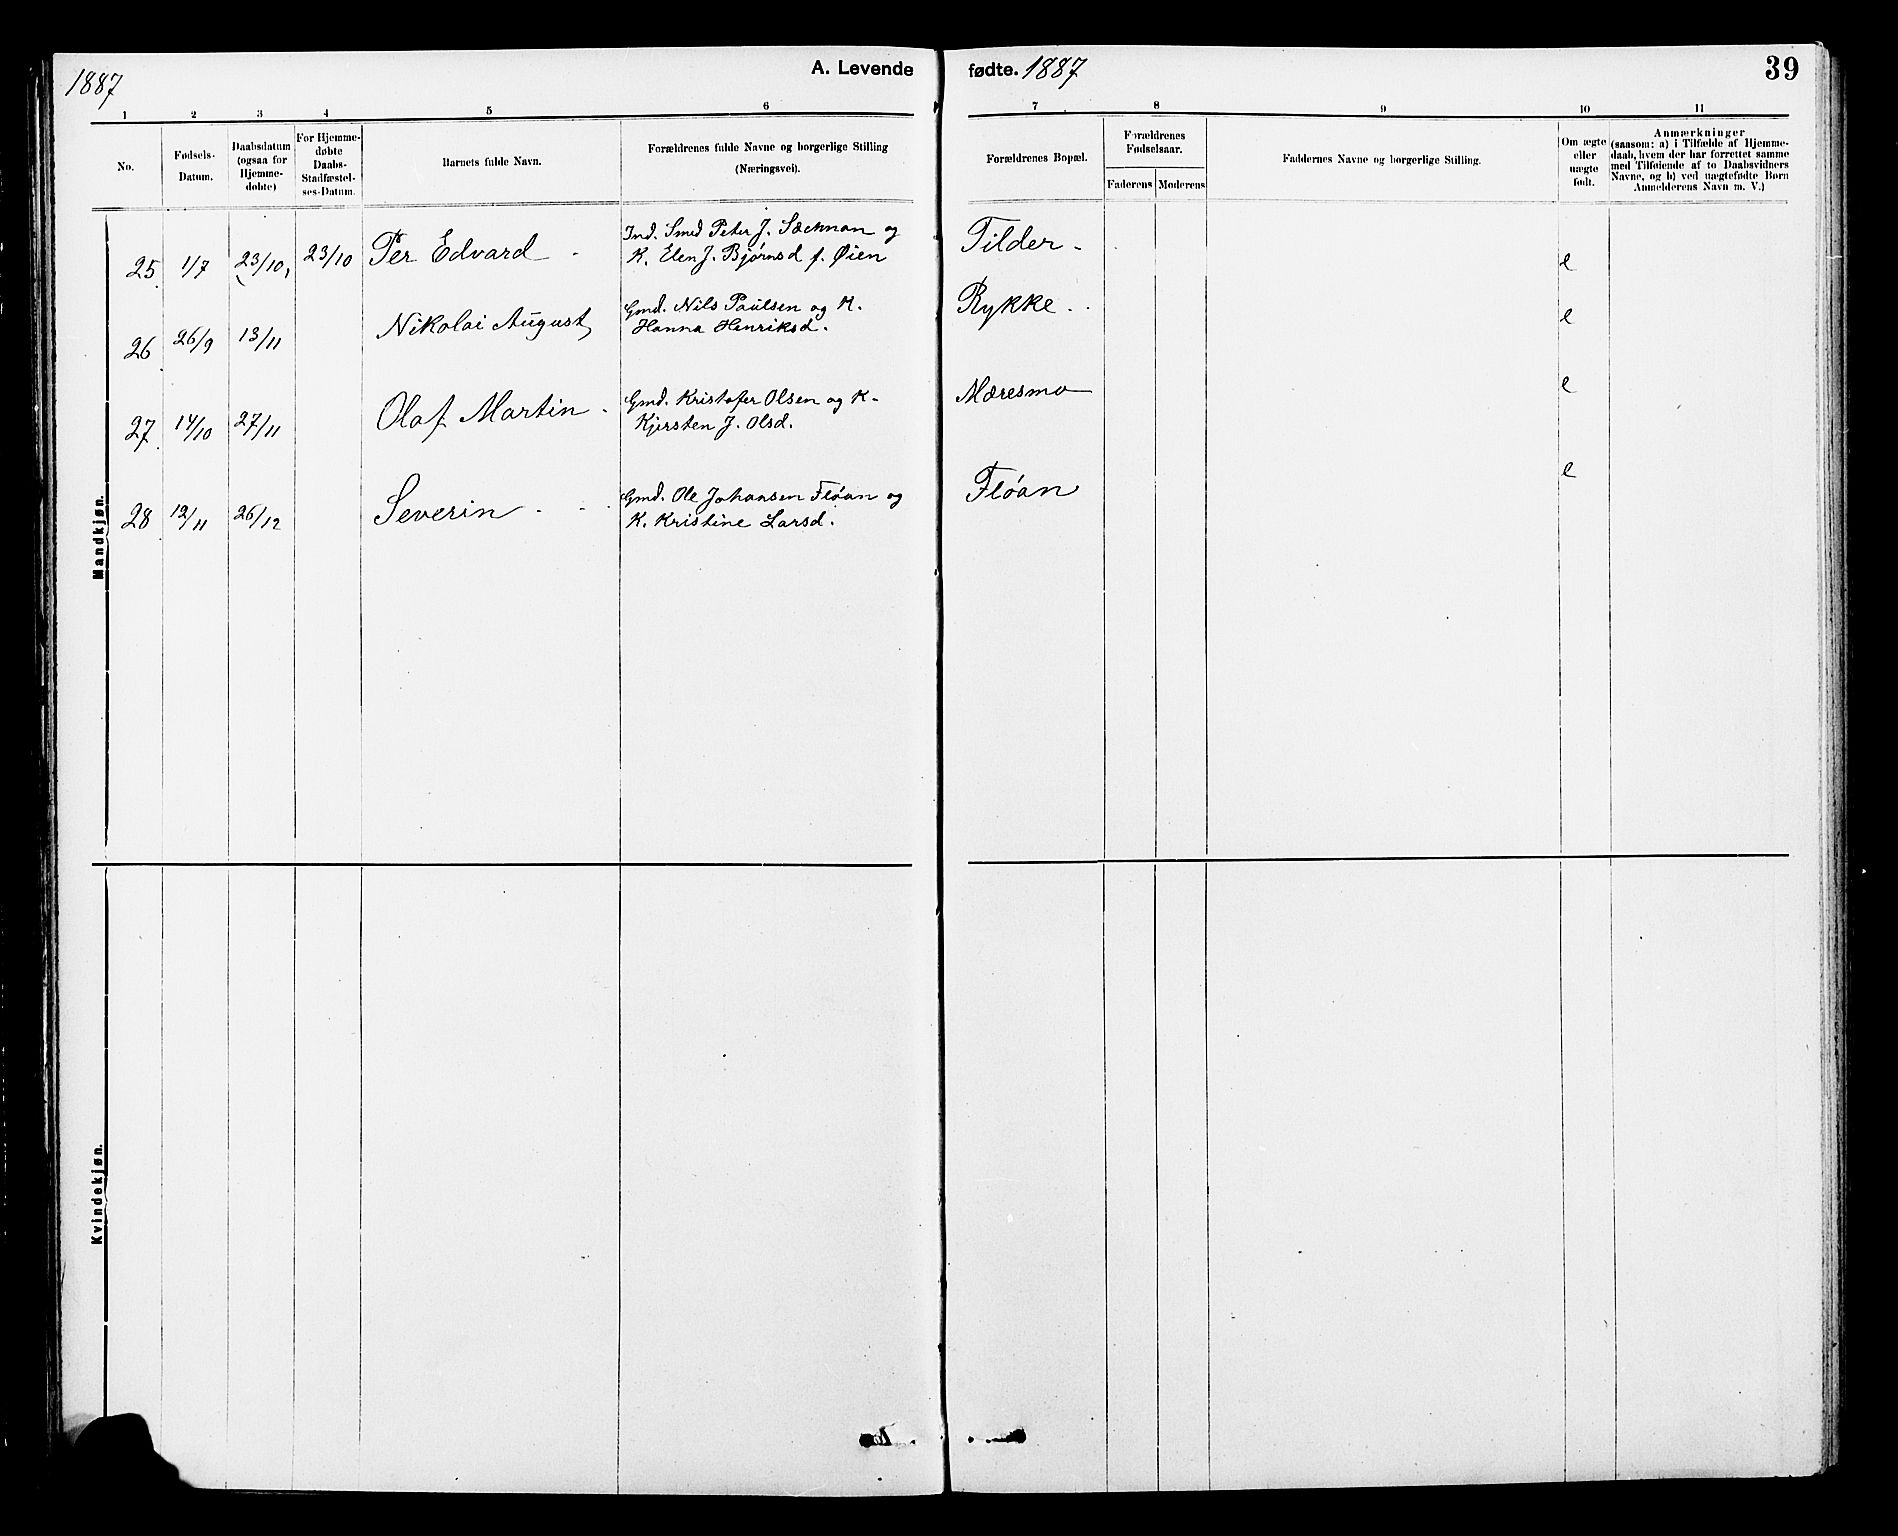 1887
A. Levende fødte. 1887
39
1 2 3 4 5 6 7 8 9 10 11
No.
Fødsels-
Datum.
Daabsdatum
(ogsaa for
Hjemme-
døbte)
For Hjemme-
døbte
Daabs-
Stadfæstel-
ses-Datum.
Barnets fulde Navn.
Forældrenes fulde Navne og borgerlige Stilling
(Næringsvei).
Forældrenes Bopæl.
Forældrenes
Fødselsaar.
Faderens Moderens
Faddernes Navne og borgerlige Stilling.
Om ægte
eller
uægte
født.
Anmærkninger
(saasom: a) i Tilfælde af Hjemme-
daab, hvem der har forrettet samme
med Tilføiende af to Daabsvidners
Navne, og b) ved uægtefødte Børn
Anmelderens Navn m. V.)
Mandkjøn.
25 1/7 23/10, 23/10 Per Edvard - Ind. Smed Peter J. og
K. Elen J. Bjørnsd f. Øien
Tilder - e
26 26/9 13/11 Nikolai August, Gmd. Nils Paulsen og K.
Hanna Henriksd.
Rykke - e
27 14/10 27/11 Olaf Martin - Gmd. Kristofer Olsen og K-
Kjersten J. Olsd.
Mæresmo e
28 /11 26/12 Severin - Gmd. Ole Johansen Fløan og
K. Kristine Larsd.
Fløan e
Kvindekjøn.